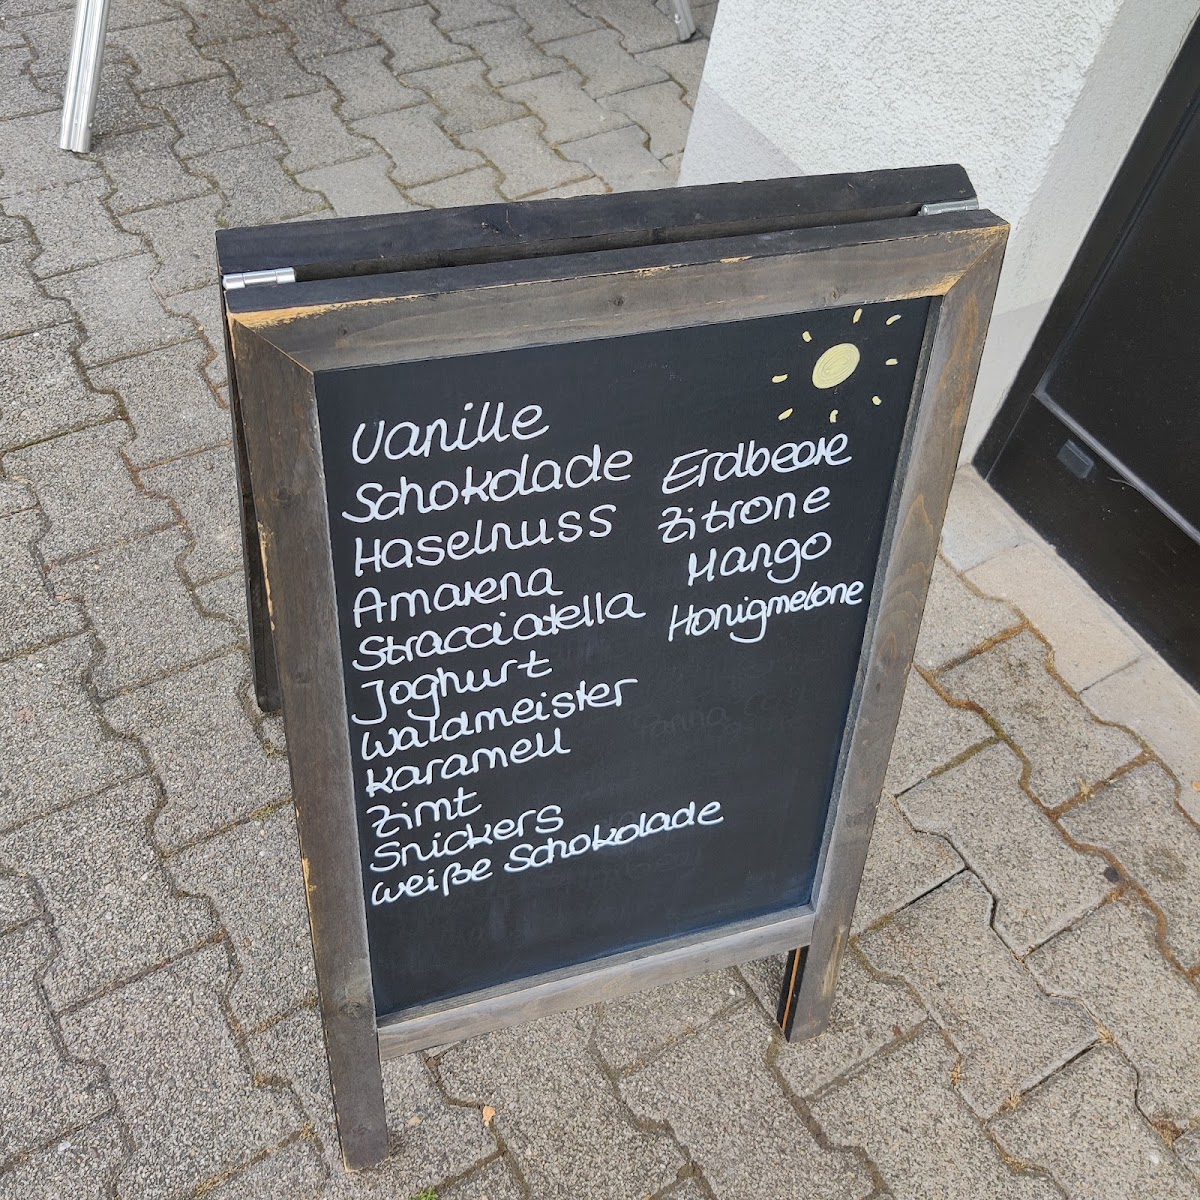 Vanille
Schokolade
Haselnuss
Amarena
Stracciatella
Joghurt
Waldmeister
Karamell
Zimt
Snickers
weiße Schokolade
Erdbeere
Zitrone
Mango
Honigmelone